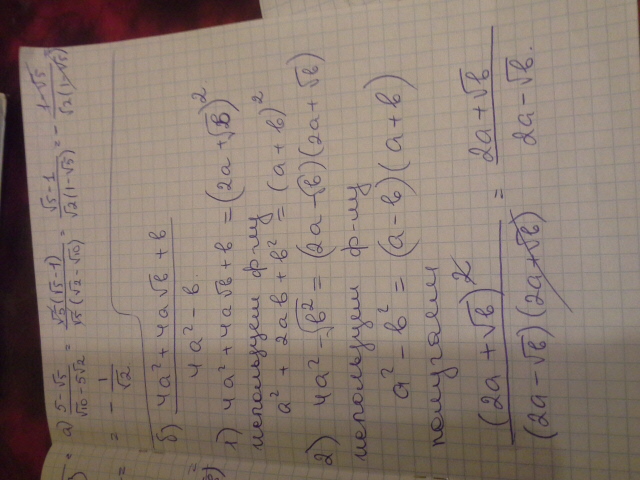 а) (5-√5)/(√10-5√2) = (√5(√5-1))/(√5(√2-√10)) = (√5-1)/(√2(1-√5)) = -(1-√5)/(√2(1-√5))
= -1/√2
б) (4a²+4a√b+b)/(4a²-b)
1) 4a²+4a√b+b = (2a+√b)²
используем ф-лу
a²+2ab+b² = (a+b)²
2) 4a²-√b² = (2a-√b)(2a+√b)
используем ф-лу
a²-b² = (a-b)(a+b)
получаем
(2a+√b)²/((2a-√b)(2a+√b)) = (2a+√b)/(2a-√b).